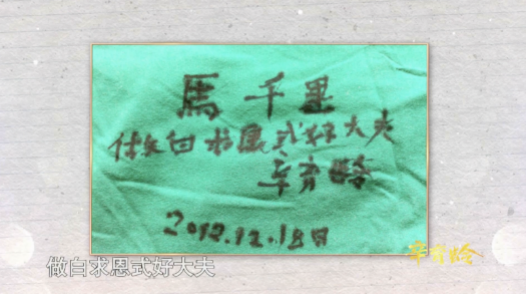 馬千里
做白求恩式好大夫
辛育龄
2012.12.18日
做白求恩式好大夫
辛育龄